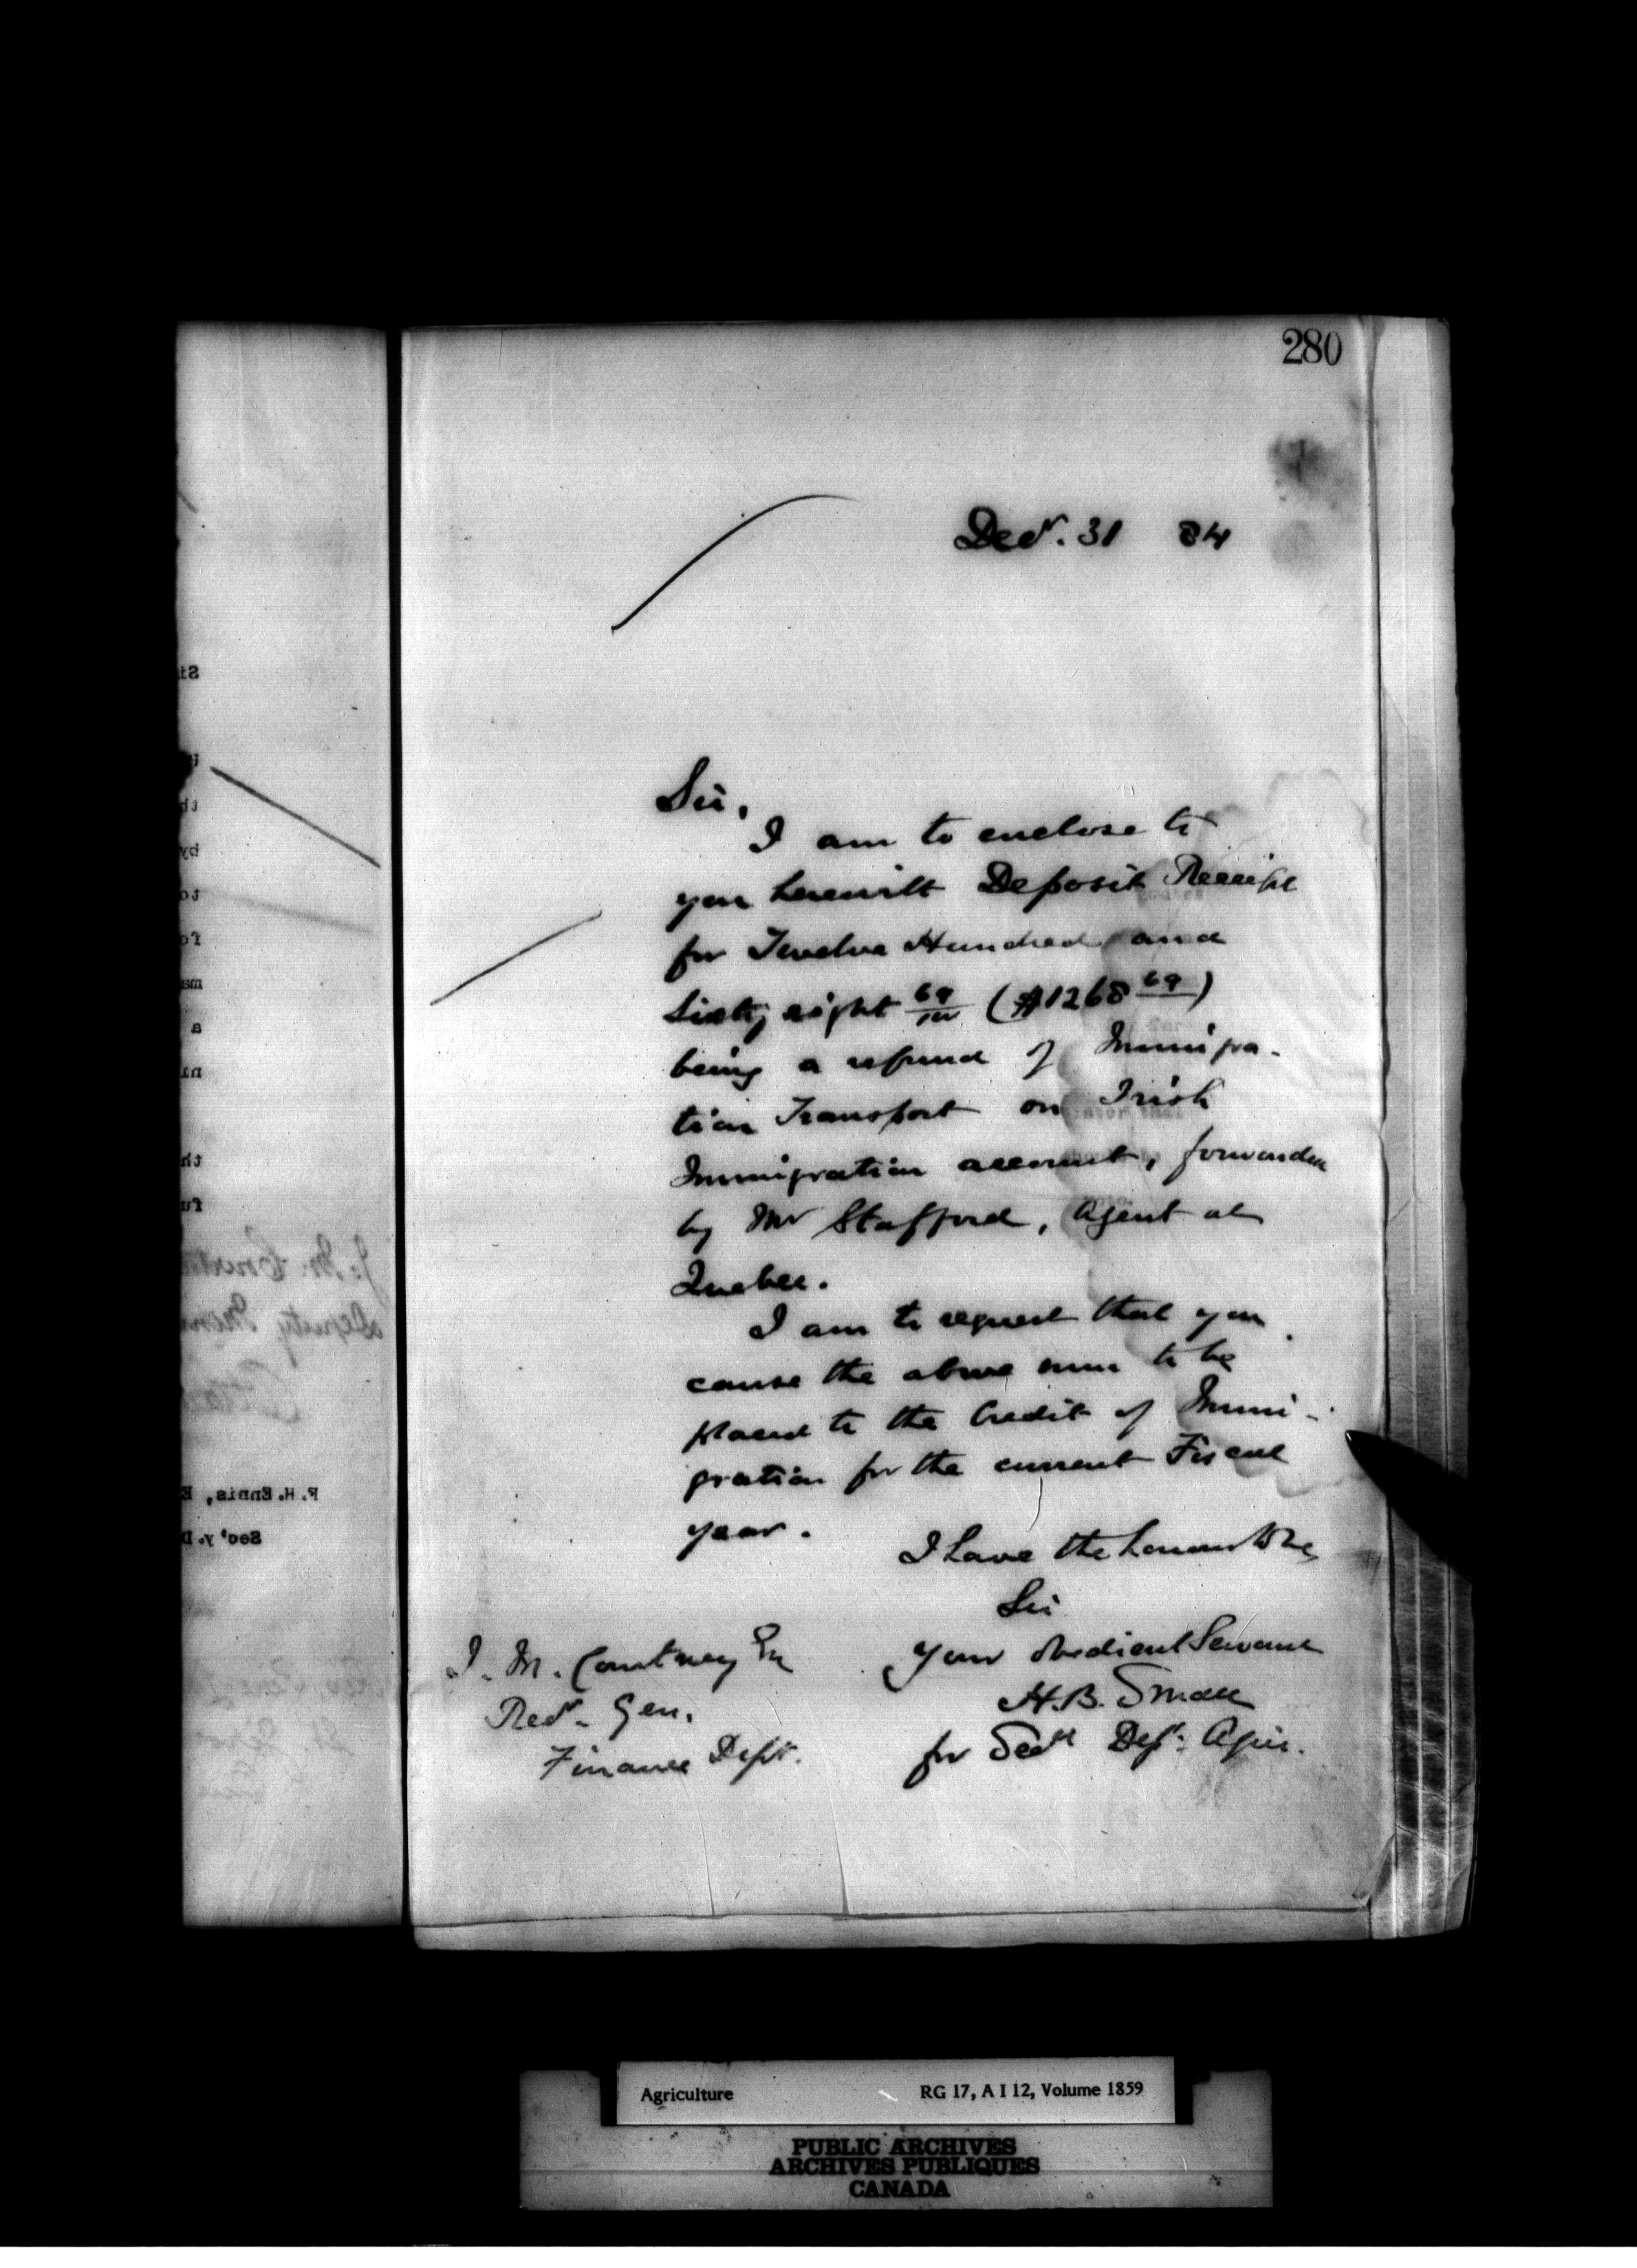 280
Decr. 31 84
Sir,
I am to enclose to
you herewith Deposit Receipt
for Twelve Hundred and
Sixty eight 69/100 ($1268 69)
being a refund of Immigra-
tion Transport on Irish
Immigration account, forwarded
by Mr Stafford, Agent at
Quebec.
I am to request that you
cause the above sum to be
placed to the Credit of Immi-
gration for the current Fiscal
year.
I have the honour to be,
Sir
Your obedient Servant
H.B. Small
for Secy Dept. Agric.
J. M. Courtney Esq
Recr. Gen.
Finance Dept.
F.H. Ennis, E
Sec'y. D
Agriculture RG 17, A I 12, Volume 1859
PUBLIC ARCHIVES
ARCHIVES PUBLIQUES
CANADA